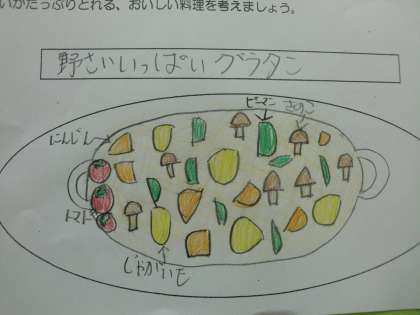 いがたっぷりとれる、おいしい料理を考えましょう。
野さいいっぱいグラタン
ピーマン
きのこ
にんじん
トマト
じゃがいも